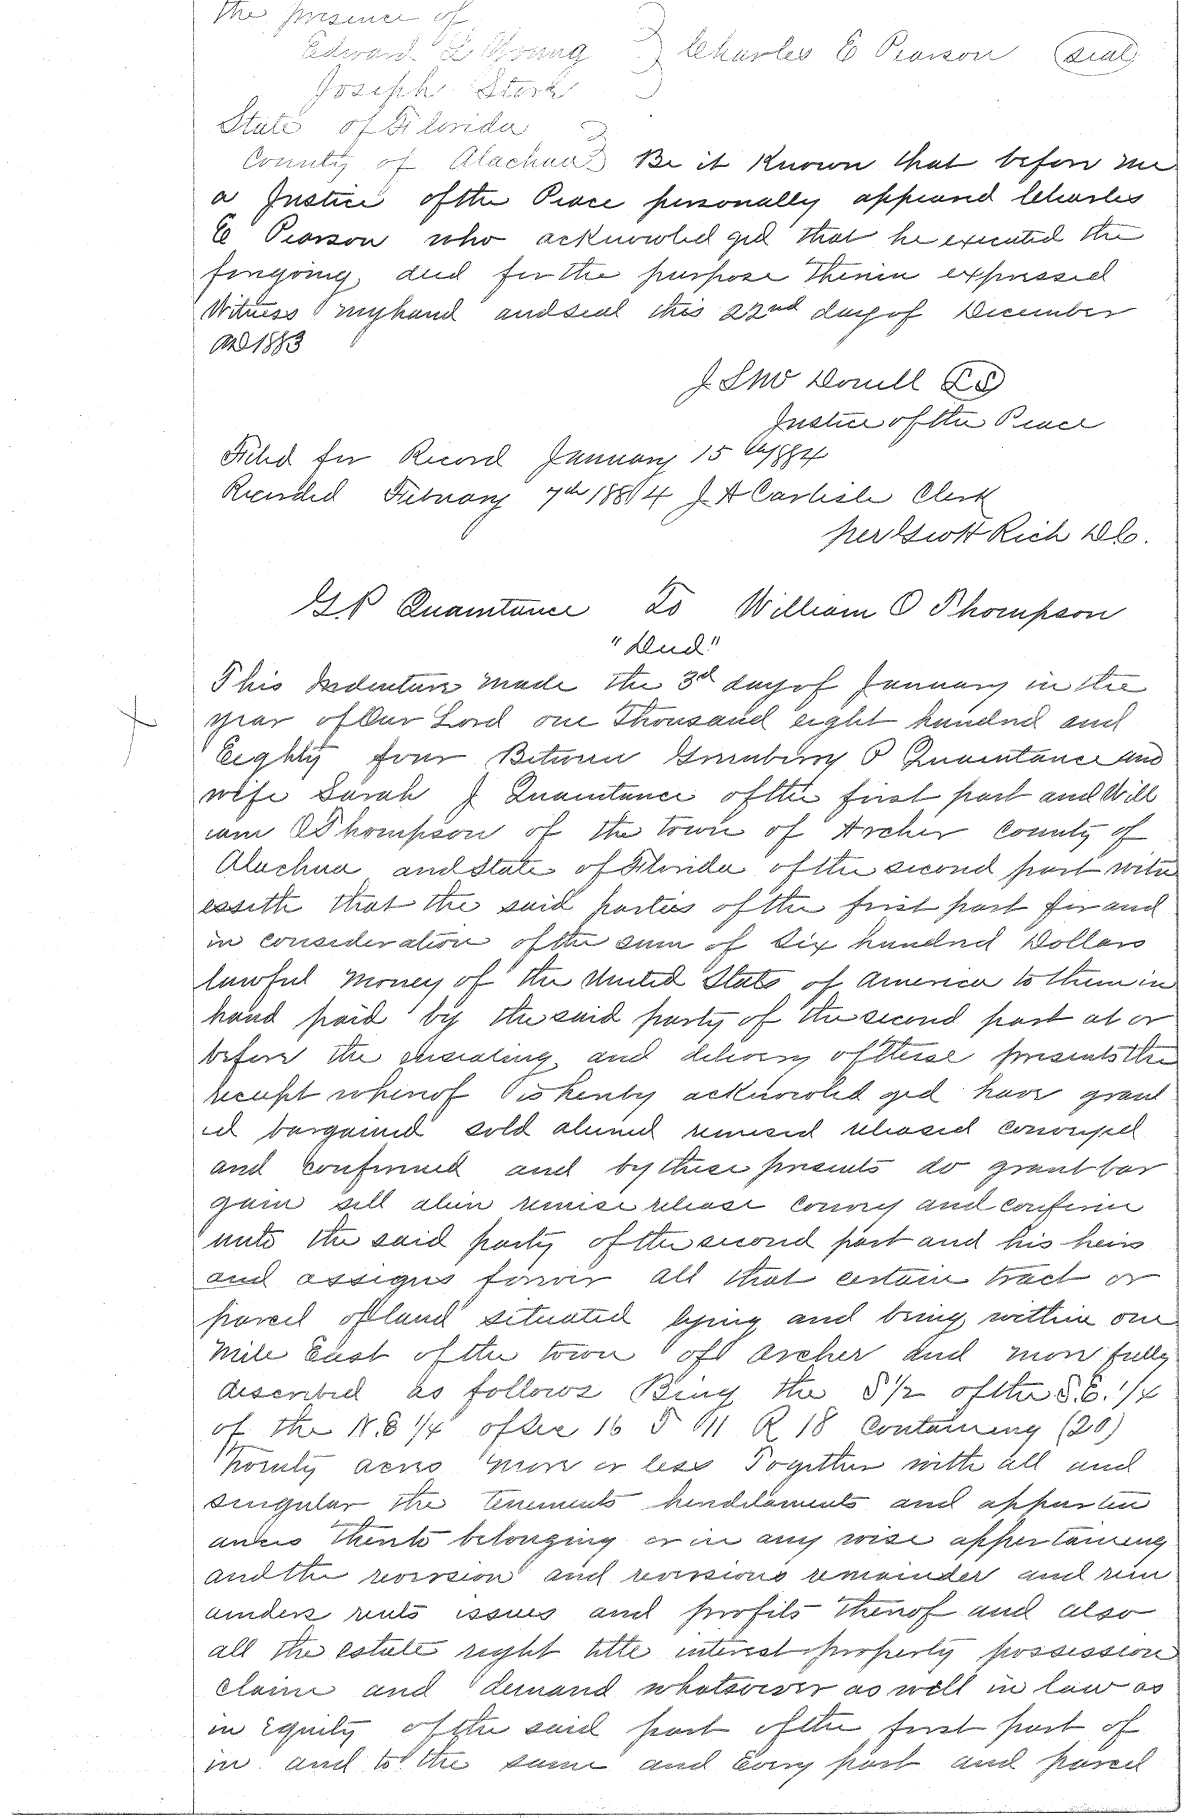 the presence of
Edward L Young } Charles E Pearson (seal)
Joseph Stork
State of Florida }
County of Alachua } Be it Known that before me
a Justice of the Peace personally appeared Charles
E Pearson who acknowledged that he executed the
foregoing deed for the purpose therein expressed
Witness my hand and seal this 22nd day of December
AD 1883
Donell LS
Justice of the Peace
Filed for Record January 15 1884
Recorded February 7th 1884 J A Carlisle Clerk
per Rich D.C.
G.P Quaintance To William O Thompson
"Deed"
This Indenture made the 3d day of January in the
year of Our Lord one Thousand eight hundred and
Eighty four Between Greenberry P Quaintance and
wife Sarah J Quaintance of the first part and Will
iam O Thompson of the town of Archer County of
Alachua and State of Florida of the second part witn
esseth that the said parties of the first part for and
in consideration of the sum of Six hundred Dollars
lawful money of the United States of America to them in
hand paid by the said party of the second part at or
before the ensealing and delivery of these presents the
receipt whereof is hereby acknowledged have grant
ed bargained sold aliened remised released conveyed
and confirmed and by these presents do grant bar
gain sell alien remise release convey and confirm
unto the said party of the second part and his heirs
and assigns forever all that certain tract or
parcel of land situated lying and being within one
Mile East of the town of Archer and more fully
described as follows Being the S 1/2 of the S.E. 1/4
of the N.E 1/4 of Sec 16 T 11 R 18 Containing (20)
Twenty acres more or less Together with all and
singular the tenements hereditaments and appurten
ances thereto belonging or in any wise appertaining
and the reversion and reversions remainder and rem
ainders rents issues and profits thereof and also
all the estate right title interest property possession
claim and demand whatsoever as well in law as
in Equity of the said part of the first part of
in and to the same and Every part and parcel